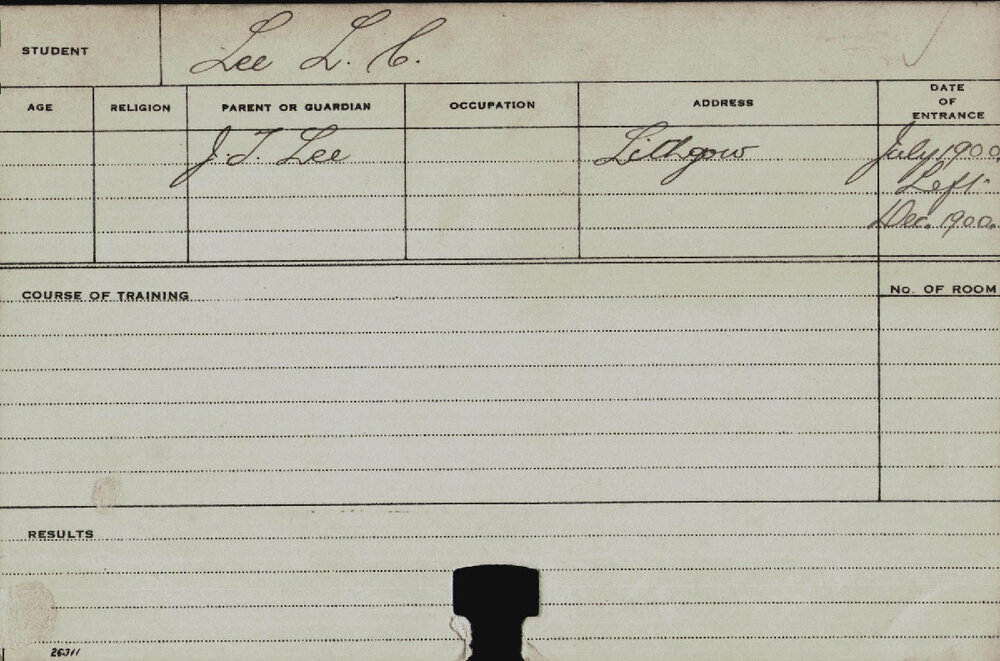 STUDENT Lee L. C.
AGE RELIGION PARENT OR GUARDIAN OCCUPATION ADDRESS DATE OF ENTRANCE
J. T. Lee Lithgow July 1900
Left
Dec. 1900
COURSE OF TRAINING No. OF ROOM
RESULTS
26311